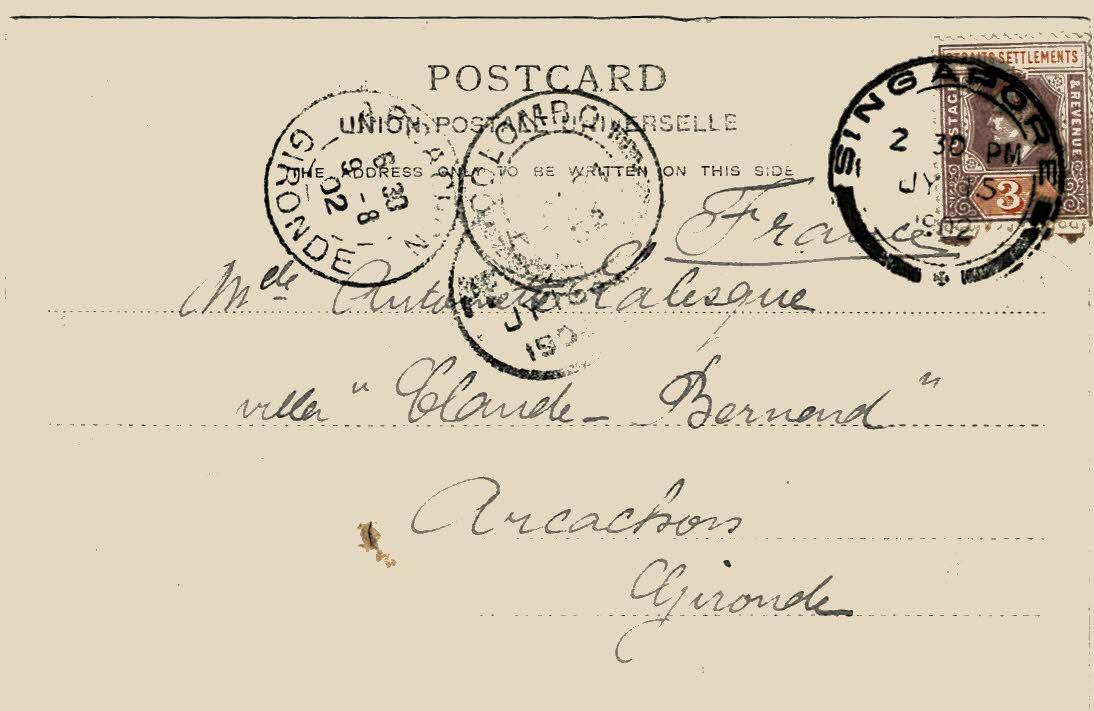 POSTCARD
UNION POSTALE UNIVERSELLE
THE ADDRESS ONLY TO BE WRITTEN ON THIS SIDE
STRAITS SETTLEMENTS
POSTAGE & REVENUE
3
SINGAPORE
2 30 PM
JY 15
1902
COLOMBO
JY
190
ARCACHON
6 30
9 - 8
02
GIRONDE
France
Mde Antoinette Lalesque
villa "Claude-Bernard"
Arcachon
Gironde